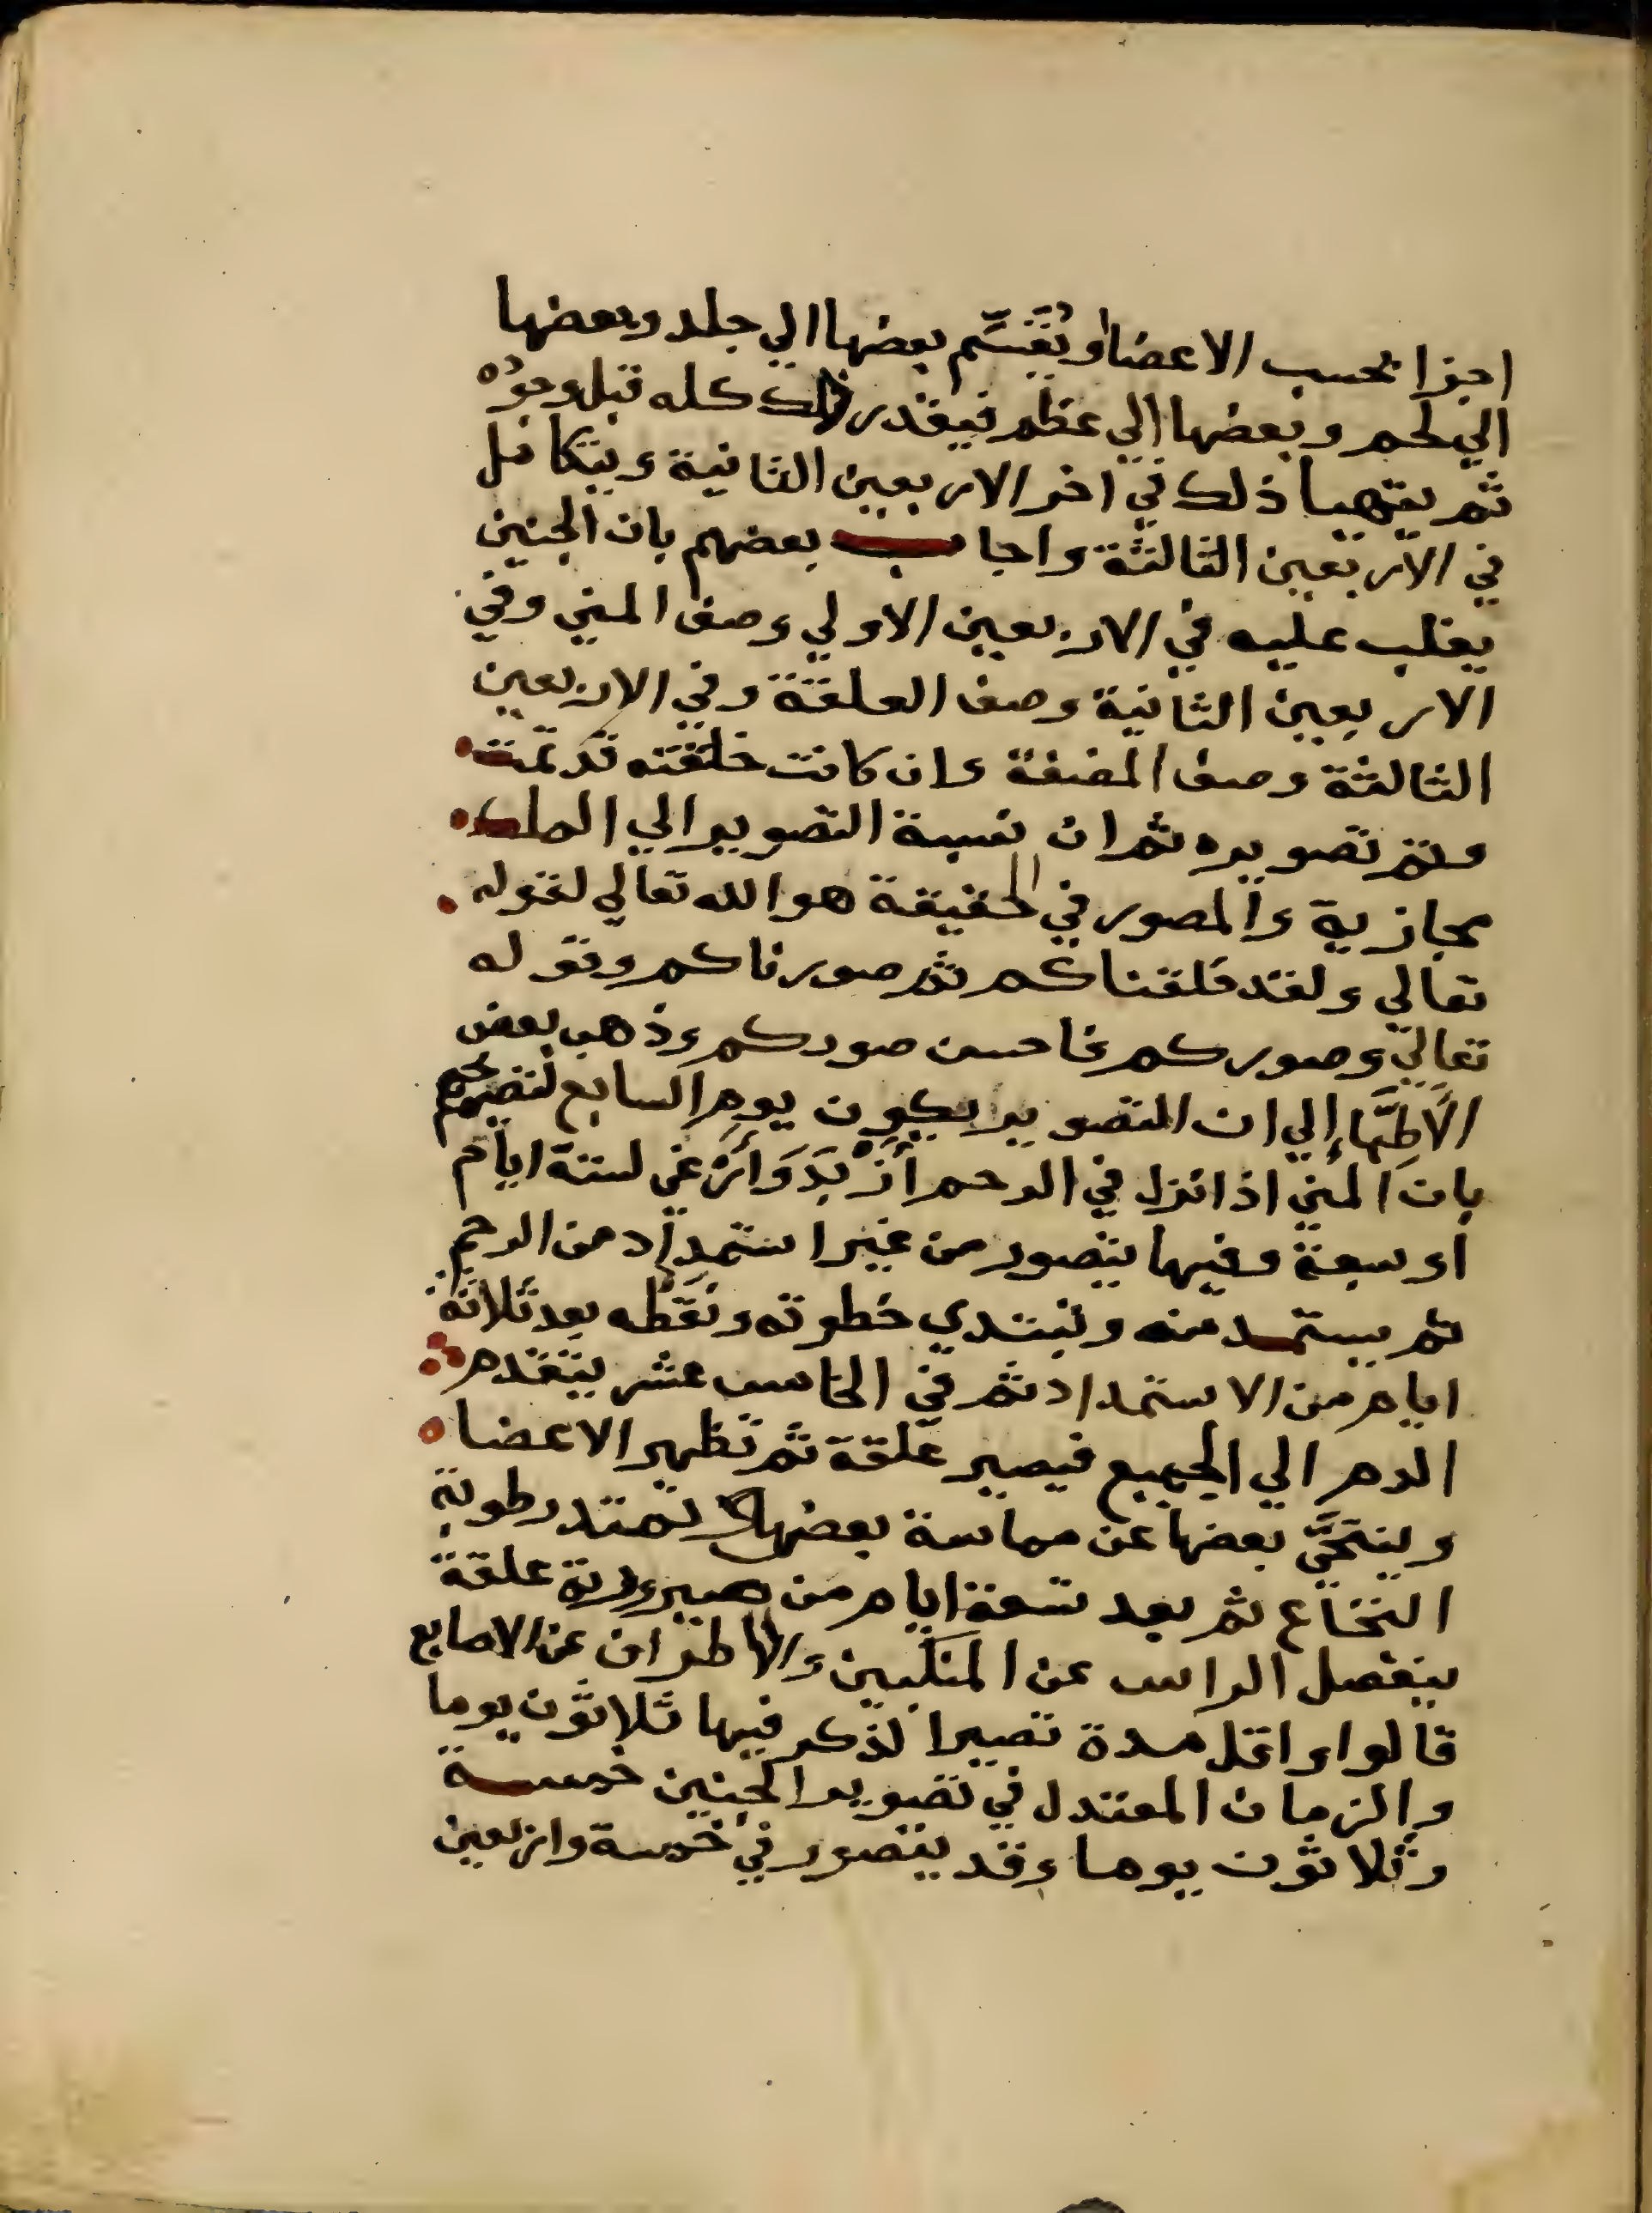 اجزا بحسب الاعضا وتُقَسَّم بعضها الي جلد وبعضها
الي لحم وبعضها الي عظم فيقدر ذلك كله قبل وجوده
ثم يتهيا ذلك في اخر الاربعين الثانية ويتكامل
في الاربعين الثالثة واجاب بعضهم بان الجنين
يغلب عليه في الاربعين الاولي وصف المني وفي
الاربعين الثانية وصف العلقة وفي الاربعين
الثالثة وصف المضغة وان كانت خلقته قد تمت
وتم تصويره ثم ان نسبة التصوير الي الملك
مجازية والمصور في الحقيقة هو الله تعالي لقوله
تعالي ولقد خلقناكم ثم صورناكم وقوله
تعالي وصوركم فاحسن صوركم وذهب بعض
الاَطِبَّاءِ إلي ان التصوير يكون يوم السابع
بان المني اذا نزل في الرحم لستة ايام
او سبعة وفيها يتصور من غير استمداد من الرحم
ثم يستمد منه ويبتدي خطوته ونقطه بعد ثلاثة
ايام من الاستمداد ثم في الخامس عشر يتقدم
الدم الي الجميع فيصير علقة ثم تظهر الاعضا
ويتنحَّي بعضها عن مماسة بعضها وتمتد رطوبة
النخاع ثم بعد تسعة ايام من صيرورته علقة
ينفصل الراس عن المنكبين والاطراف عن الاصابع
قالوا واقل مدة تصير الذكر فيها ثلاثون يوما
والزمان المعتدل في تصوير الجنين خمسة
وثلاثون يوما وقد يتصور في خمسة واربعين